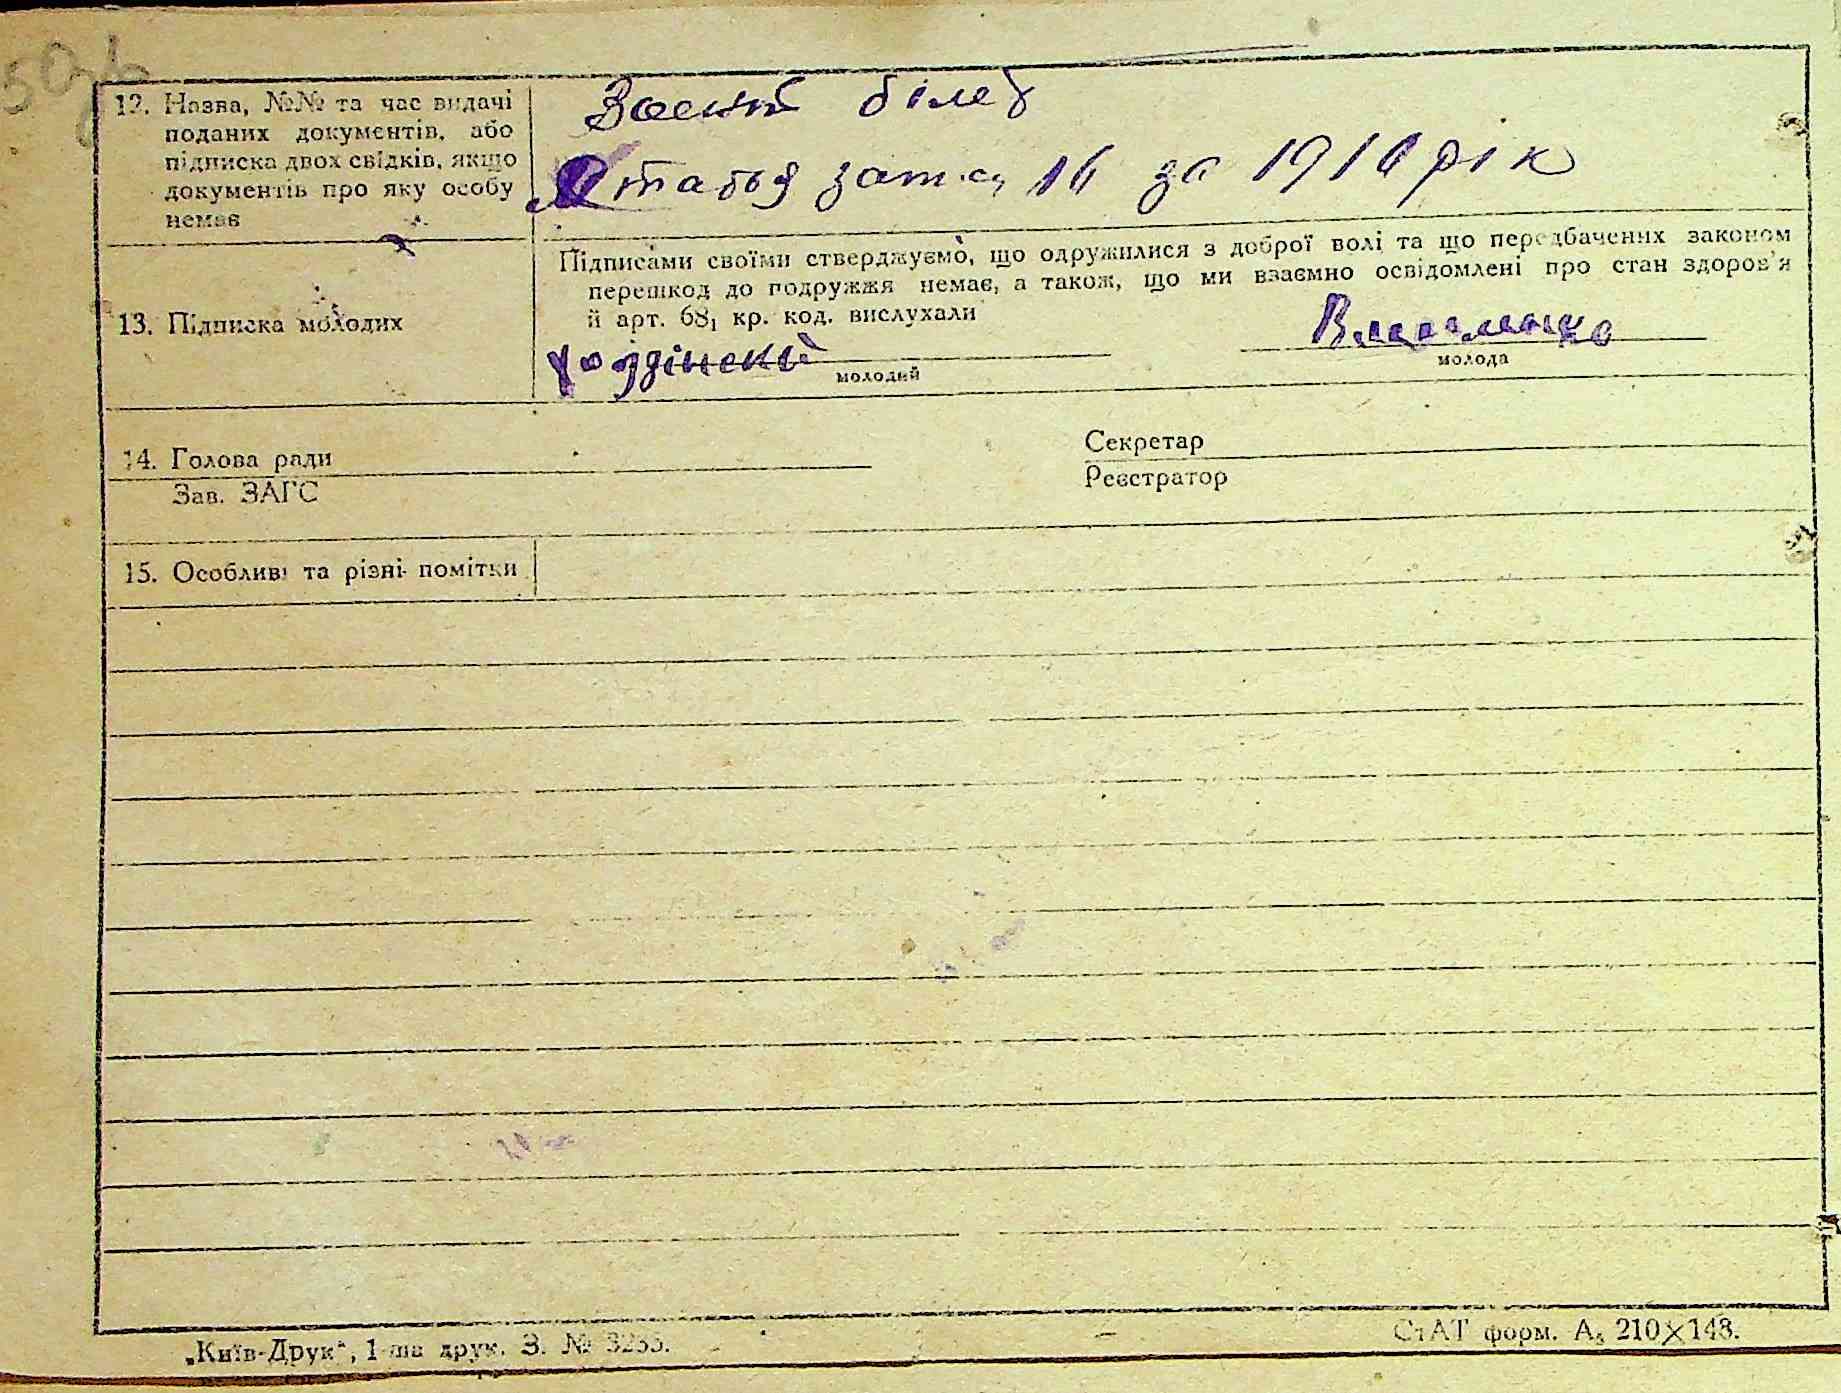 12. Назва, №№ та час видачі
поданих документів, або
підписка двох свідків, якщо
документів про яку особу
немає
білет
за 1916 рік
Підписами своїми стверджуємо, що одружилися з доброї волі та що передбачених законом
перешкод до подружжя немає, а також, що ми взаємно освідомлені про стан здоров'я
й арт. 68₁ кр. код. вислухали
13. Підписка молодих
молодий
молода
14. Голова ради
Зав. ЗАГС
Секретар
Реєстратор
15. Особливі та різні помітки
„Київ-Друк“, 1-ша друк. З. № 3255.
СтАТ форм. А₅ 210×148.